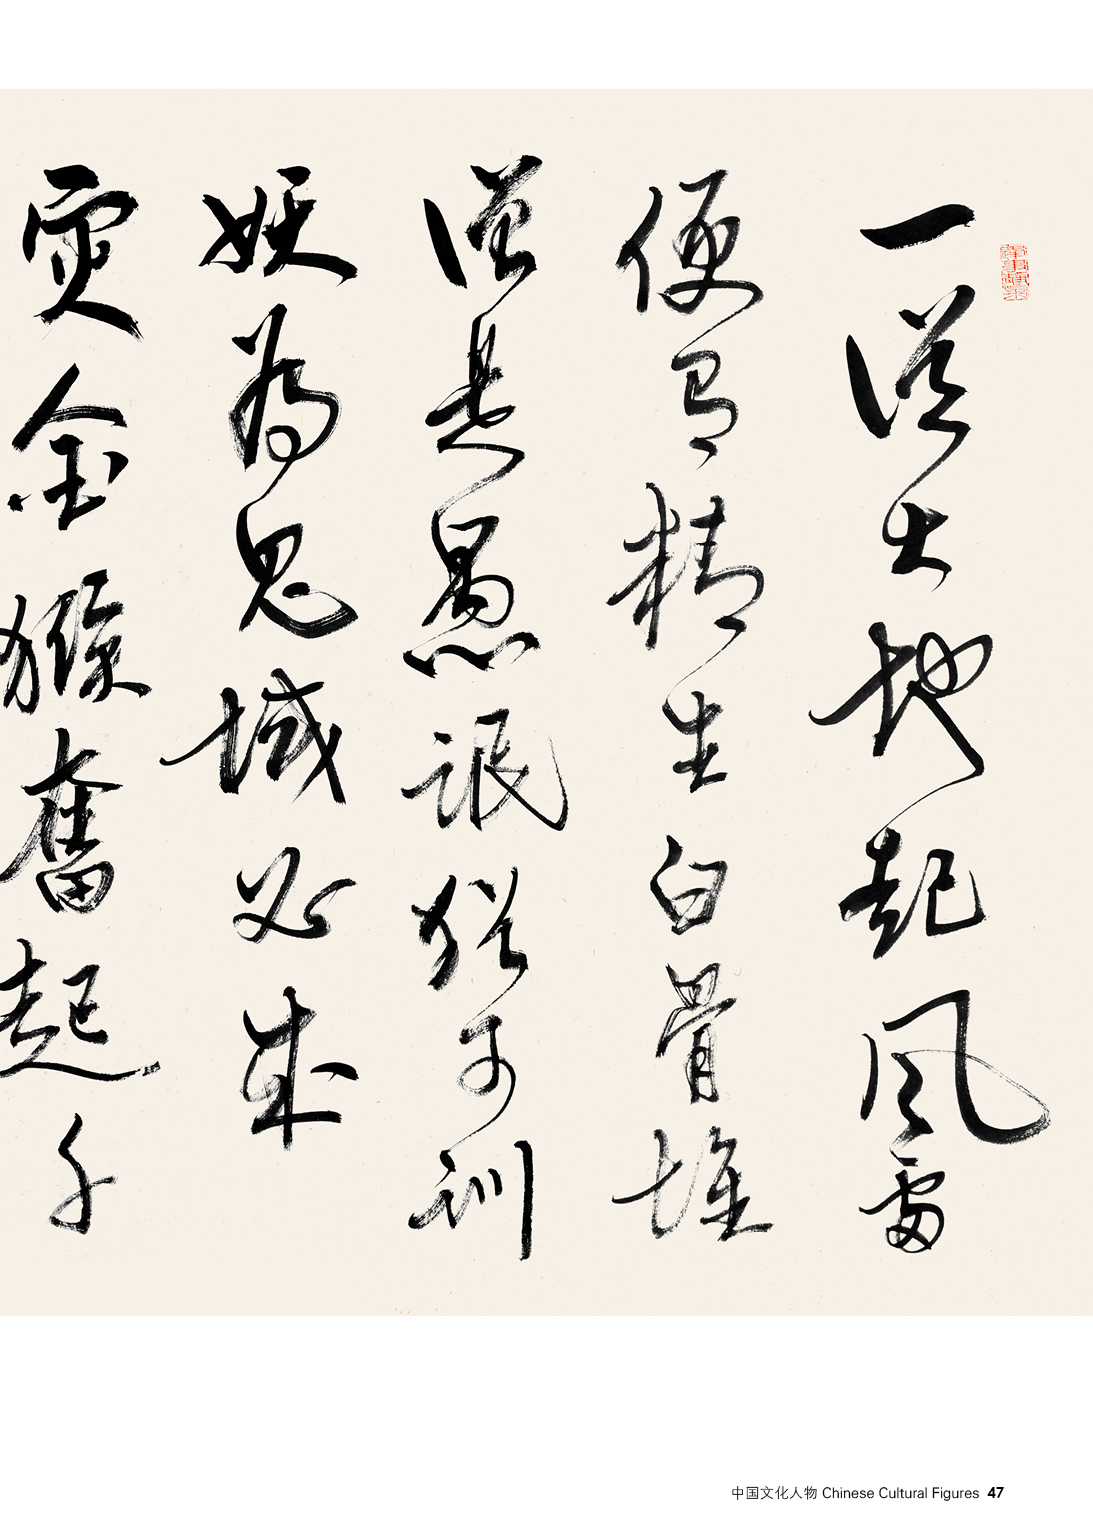 一從大地起风雷
便有精生白骨堆
僧是愚氓猶可訓
妖為鬼域必成
災金猴奮起千
中国文化人物 Chinese Cultural Figures 47